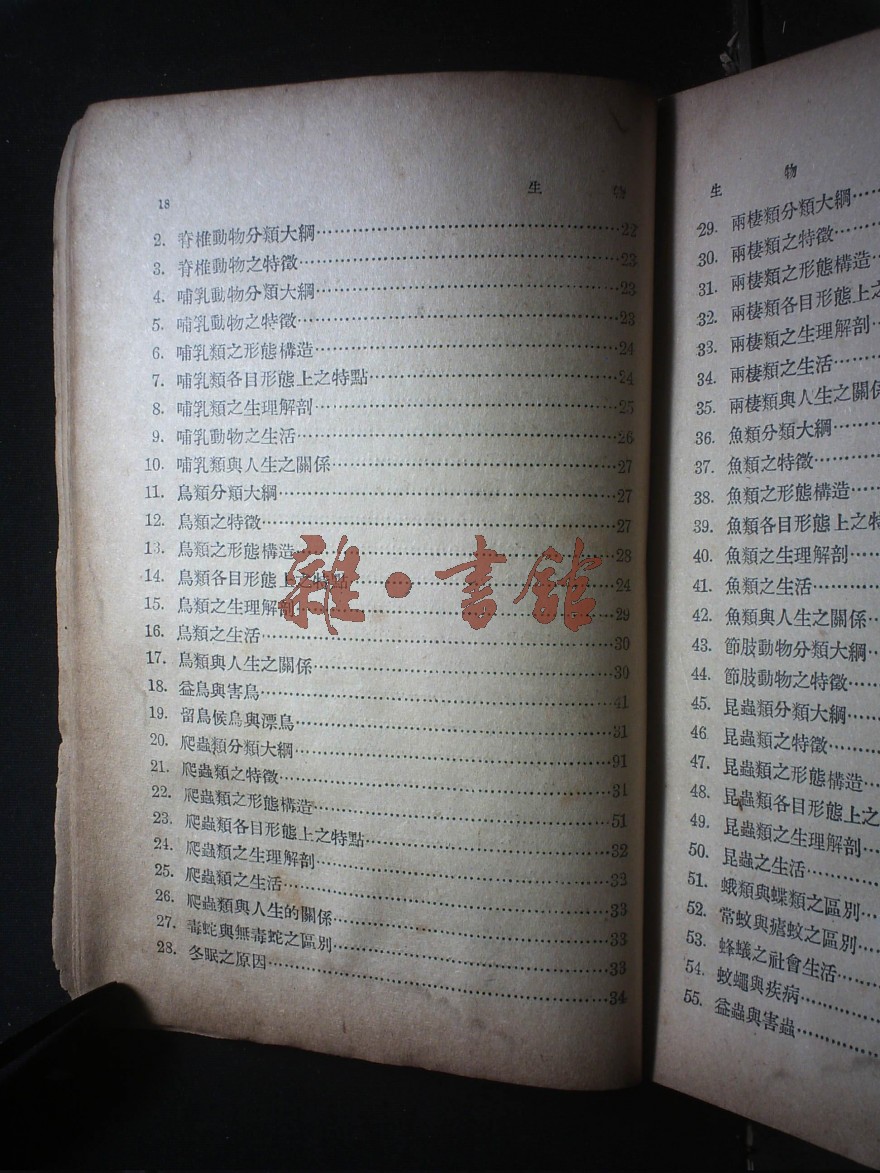 18 生 物
2. 脊椎動物分類大綱……22
3. 脊椎動物之特徵……23
4. 哺乳動物分類大綱……23
5. 哺乳動物之特徵……23
6. 哺乳類之形態構造……24
7. 哺乳類各目形態上之特點……24
8. 哺乳類之生理解剖……25
9. 哺乳動物之生活……26
10. 哺乳類與人生之關係……27
11. 鳥類分類大綱……27
12. 鳥類之特徵……27
13. 鳥類之形態構造……28
14. 鳥類各目形態上之特點……24
15. 鳥類之生理解剖……29
16. 鳥類之生活……30
17. 鳥類與人生之關係……30
18. 益鳥與害鳥……41
19. 留鳥候鳥與漂鳥……31
20. 爬蟲類分類大綱……91
21. 爬蟲類之特徵……31
22. 爬蟲類之形態構造……51
23. 爬蟲類各目形態上之特點……32
24. 爬蟲類之生理解剖……33
25. 爬蟲類之生活……33
26. 爬蟲類與人生的關係……33
27. 毒蛇與無毒蛇之區別……33
28. 冬眠之原因……34
雜·書館
生 物
29. 兩棲類分類大綱……
30. 兩棲類之特徵……
31. 兩棲類之形態構造……
32. 兩棲類各目形態上之
33. 兩棲類之生理解剖……
34. 兩棲類之生活……
35. 兩棲類與人生之關係
36. 魚類分類大綱……
37. 魚類之特徵……
38. 魚類之形態構造……
39. 魚類各目形態上之特
40. 魚類之生理解剖……
41. 魚類之生活……
42. 魚類與人生之關係……
43. 節肢動物分類大綱……
44. 節肢動物之特徵……
45. 昆蟲類分類大綱……
46. 昆蟲類之特徵……
47. 昆蟲類之形態構造……
48. 昆蟲類各目形態上之
49. 昆蟲類之生理解剖……
50. 昆蟲之生活……
51. 蛾類與蝶類之區別……
52. 常蚊與瘧蚊之區別……
53. 蜂蟻之社會生活……
54. 蚊蠅與疾病……
55. 益蟲與害蟲……